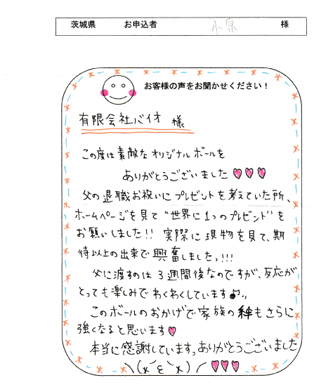 茨城県 お申込者 小泉 様
お客様の声をお聞かせください！
有限会社バイオ 様
この度は素敵なオリジナルボールを
ありがとうございました♡♡♡
父の退職お祝いにプレゼントを考えていた所、
ホームページを見て"世界に1つのプレゼント"を
お願いしました!! 実際に現物を見て、期
待以上の出来で興奮しました!!!
父に渡すのは3週間後なのですが、反応が
とっても楽しみでわくわくしています♪。
このボールのおかげで家族の絆もさらに
強くなると思います♡
本当に感謝しています。ありがとうございました
＼(x^ε^x)／♡♡♡